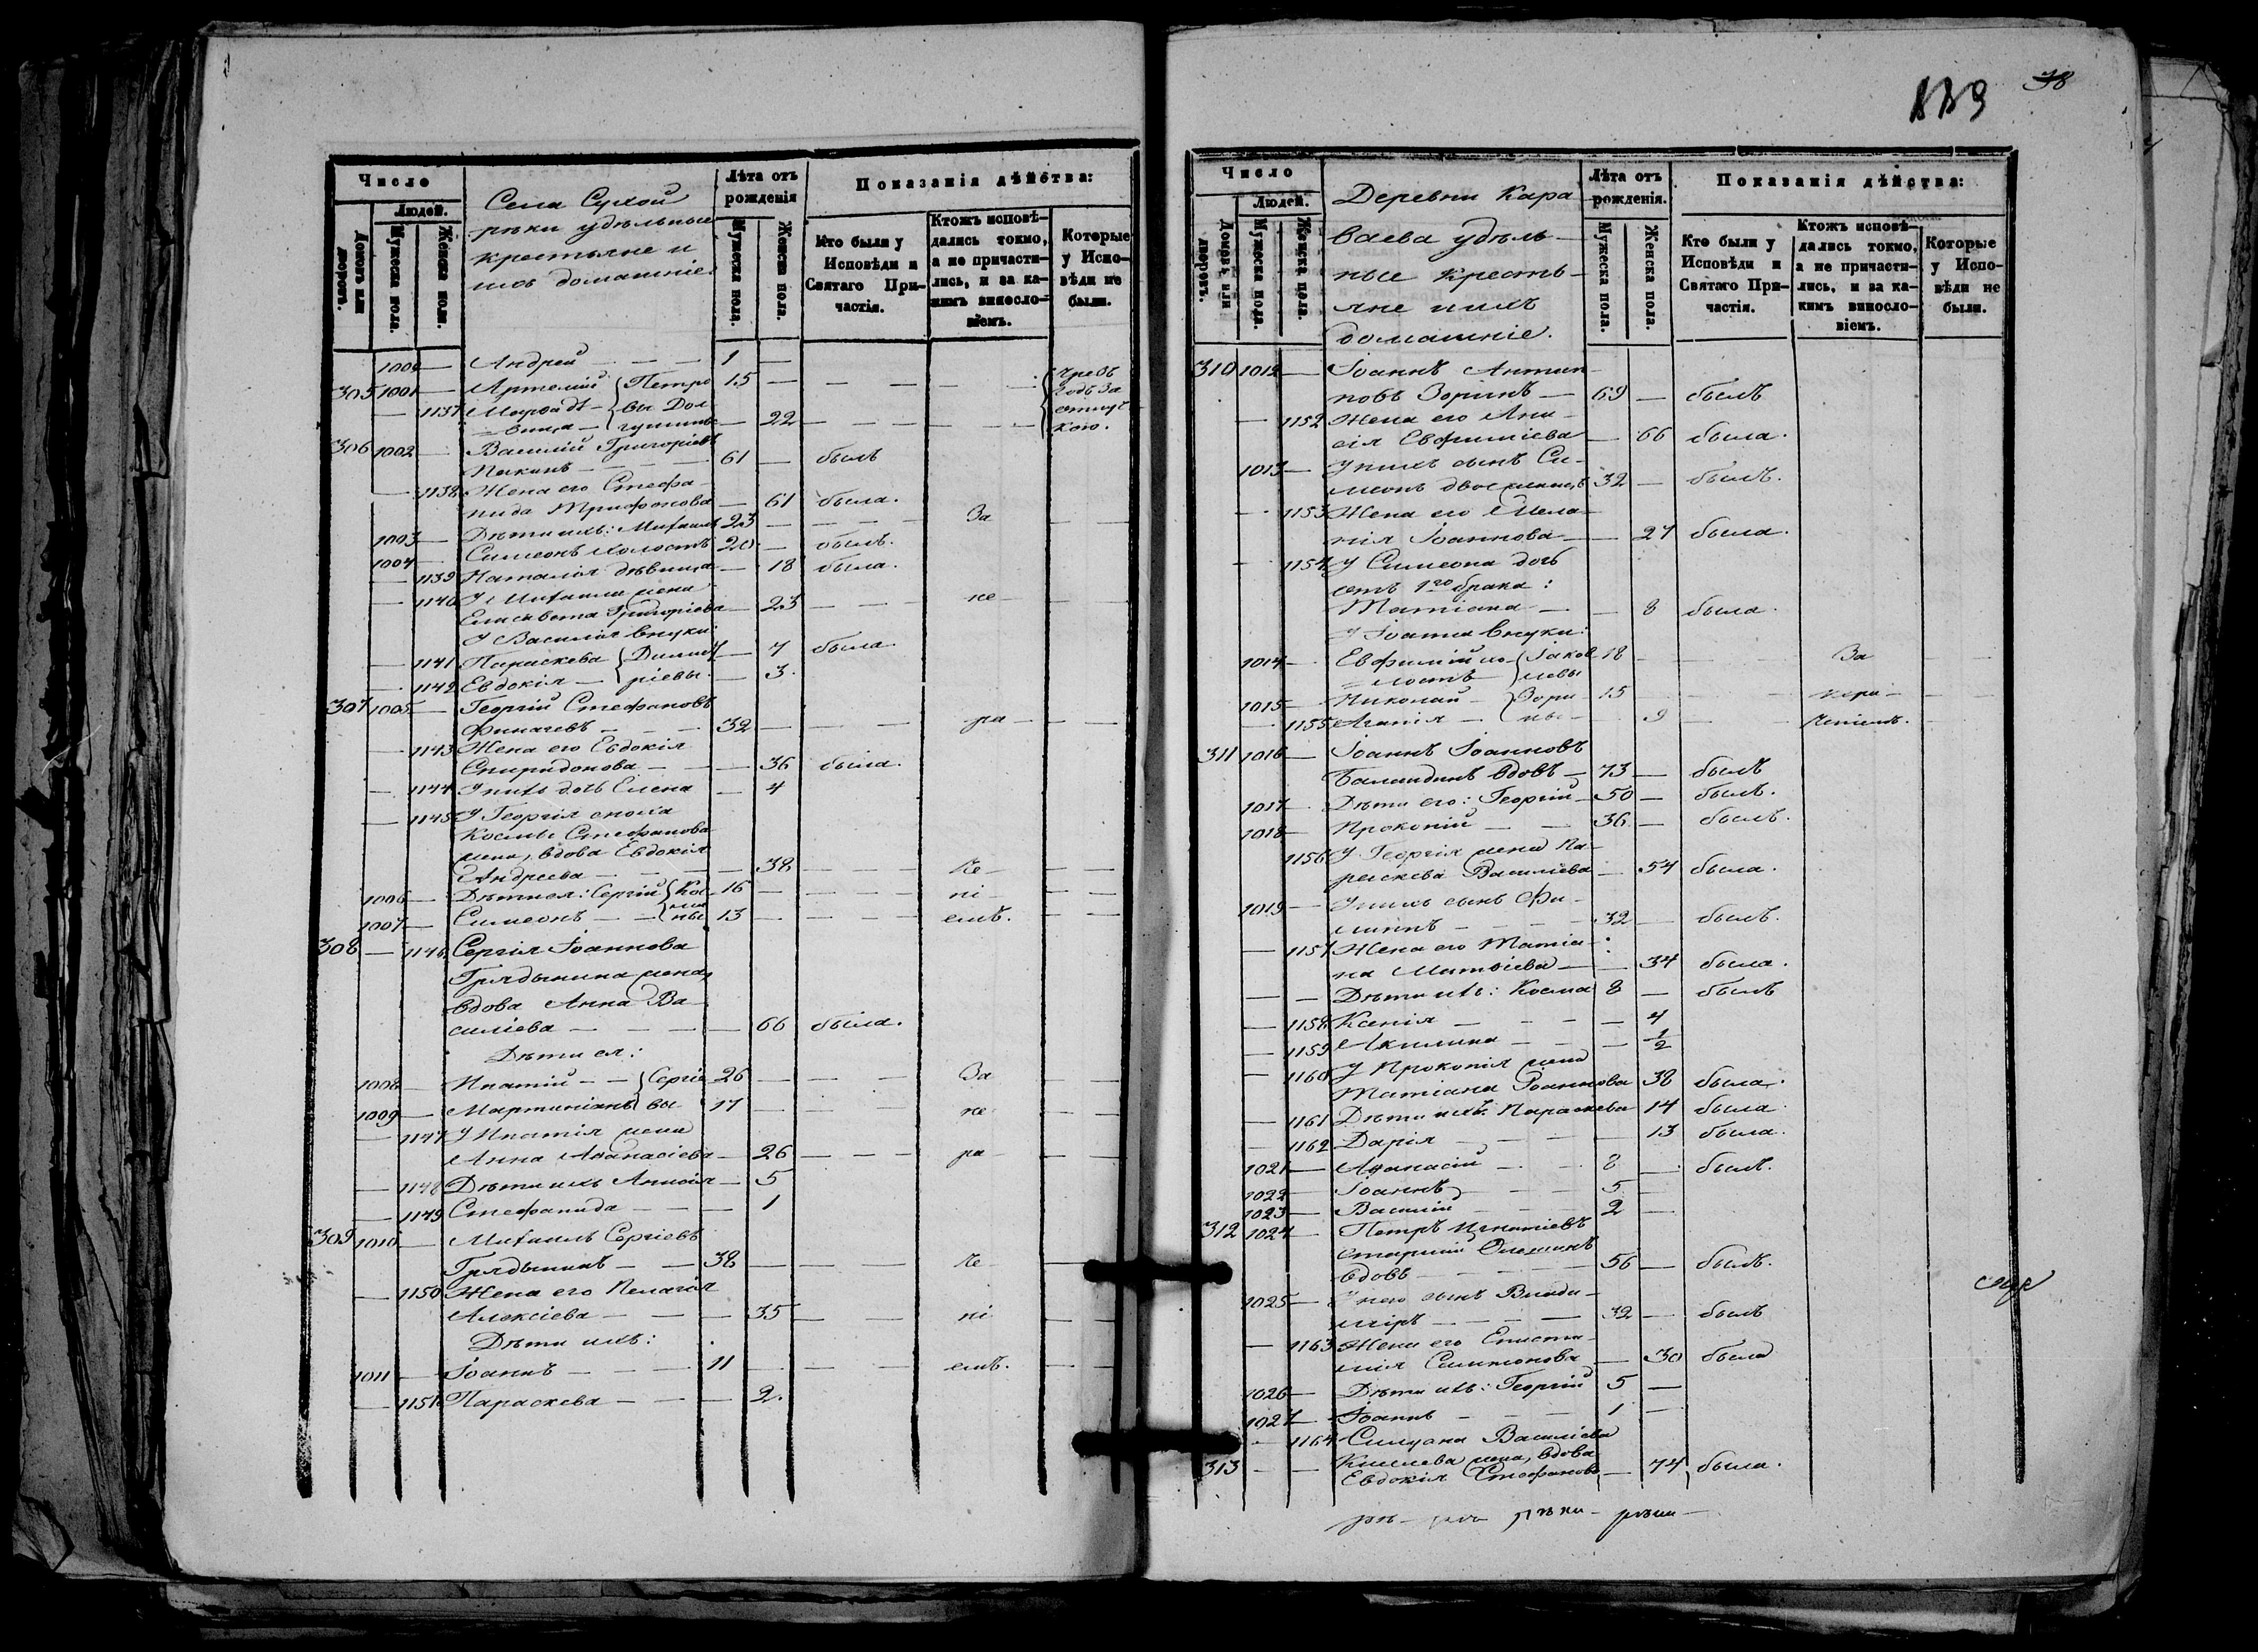 Число
Людей.
Домовъ или дворовъ.
Мужеска пола.
Женска пола.
Села Сухой
рѣки удѣльные
крестьяне и
ихъ домашніе.
Лѣта отъ рожденія
Мужеска пола.
Женска пола.
Показанія дѣйства:
Кто были у Исповѣди и Святаго Причастія.
Ктожъ исповѣдались токмо, а не причастились, и за какимъ винословіемъ.
Которые у Исповѣди не были.
1000 — Андрей — — — 1 —
305 1001 — Артемій { Петро 15 — — — — Чрезъ
— 1137 Марѳа дѣ- { вы Дол годъ за
вица — { гушины — 22 — — — отлуч
кою.
306 1002 — Василій Григоріевъ
— 61 — былъ
— 1138 Жена его Стефа-
нида Трифонова — 61 была.
1003 — Дѣти ихъ: Михаилъ 23 — — — За — —
1004 — Симеонъ холостъ 20 — былъ.
— 1139 Наталія дѣвица — 18 была.
— 1140 У Михаила жена
Елисавета Григоріева — 23 — — не — —
У Василія внуки:
— 1141 Параскева { Димит — 7 была
— 1142 Евдокія — { ріевы — 3.
307 1005 — Георгій Стефановъ
— — 32 — — — ра — —
— 1143 Жена его Евдокія
Спиридонова — — 36 была.
— 1144 У нихъ дочь Елена — 4
— 1145 У Георгія сноха
Космы Стефанова
жена, вдова Евдокія
Андреева — — — 38 — — Че — —
1006 — Дѣти ея: Сергій { Кос 16 — — — ні — —
1007 — Симеонъ — — { мины 13 — — — емъ. — —
308 — 1146 Сергія Іоаннова
Грядынина жена,
вдова Анна Ва-
силіева — — — — 66 была.
Дѣти ея:
1008 — Ипатій — — { Сергіе 26 — — — За — —
1009 — Мартиніанъ { вы 17 — — — не
— 1147 У Ипатія жена
Анна Аѳанасіева — 26 — — — ра — —
— 1148 Дѣти ихъ Анисія — 5
— 1149 Стефанида — — — 1
309 1010 — Михаилъ Сергіевъ
Грядынинъ — — 38 — — — Че — —
— 1150 Жена его Пелагія
Алексіева — — — 35 — — ні — —
Дѣти ихъ:
1011 — Іоаннъ — — — 11 — — — емъ. — —
— 1151 Параскева — — — 2.
38
Число
Людей.
Домовъ или дворовъ.
Мужеска пола.
Женска пола.
Деревни Кара
ваева удѣль-
ные кресть-
яне и ихъ
домашніе.
Лѣта отъ рожденія.
Мужеска пола.
Женска пола.
Показанія дѣйства:
Кто были у Исповѣди и Святаго Причастія.
Ктожъ исповѣдались токмо, а не причастились, и за какимъ винословіемъ.
Которые у Исповѣди не были.
310 1012 — Іоаннъ Антип
повъ Зоринъ — 69 — былъ
— 1152 Жена его Ани-
сія Евфиміева — 66 была.
1013 — У нихъ сынъ Си-
меонъ двоеженецъ 32 — былъ.
— 1153 Жена его Мела-
нія Іоаннова — 27 была.
— 1154 У Симеона дочь
отъ 1го брака:
Татіана — — 8 была.
У Іоанна внуки:
1014 — Евфимій хо- { Іаков 18 — — — За
лостъ { левы
1015 — Николай — { Зори 15 — — — нера — —
— 1155 Агапія — { ны — 9 — — ченіемъ. —
311 1016 — Іоаннъ Іоанновъ
Баландинъ вдовъ — 73 — былъ
1017 — Дѣти его: Георгій — 50 — былъ.
1018 — Прокопій — — 36 — былъ.
1156 У Георгія жена Па-
раскева Василіева — 54 была.
1019 — У нихъ сынъ Фи-
липпъ — — — 32 — былъ.
— 1157 Жена его Татіа-
на Матѳіева — — 34 была.
— — Дѣти ихъ: Косма 8 — былъ
— 1158 Ксенія — — — — 4
— 1159 Акилина — — — — 1/2
— 1160 У Прокопія жена
Татіана Іоаннова 38 была.
— 1161 Дѣти ихъ: Параскева 14 была.
— 1162 Дарія — — — — 13 была.
1021 — Аѳанасій — — — 8 — былъ.
1022 — Іоаннъ — — — 5 —
1023 — Василій — — 2 —
312 1024 — Петръ Игнатіевъ
старшій
вдовъ — — — 56 — былъ.
1025 — У него сынъ Влади-
міръ — — — — 32 — былъ
— 1163 Жена его Еписти-
мія Симеонова — 30 была
1026 — Дѣти ихъ: Георгій 5 —
1027 — Іоаннъ — — — 1 —
— 1164 Силуана Василіева
жена, вдова
313 — — Евдокія Стефанова — 74 была.